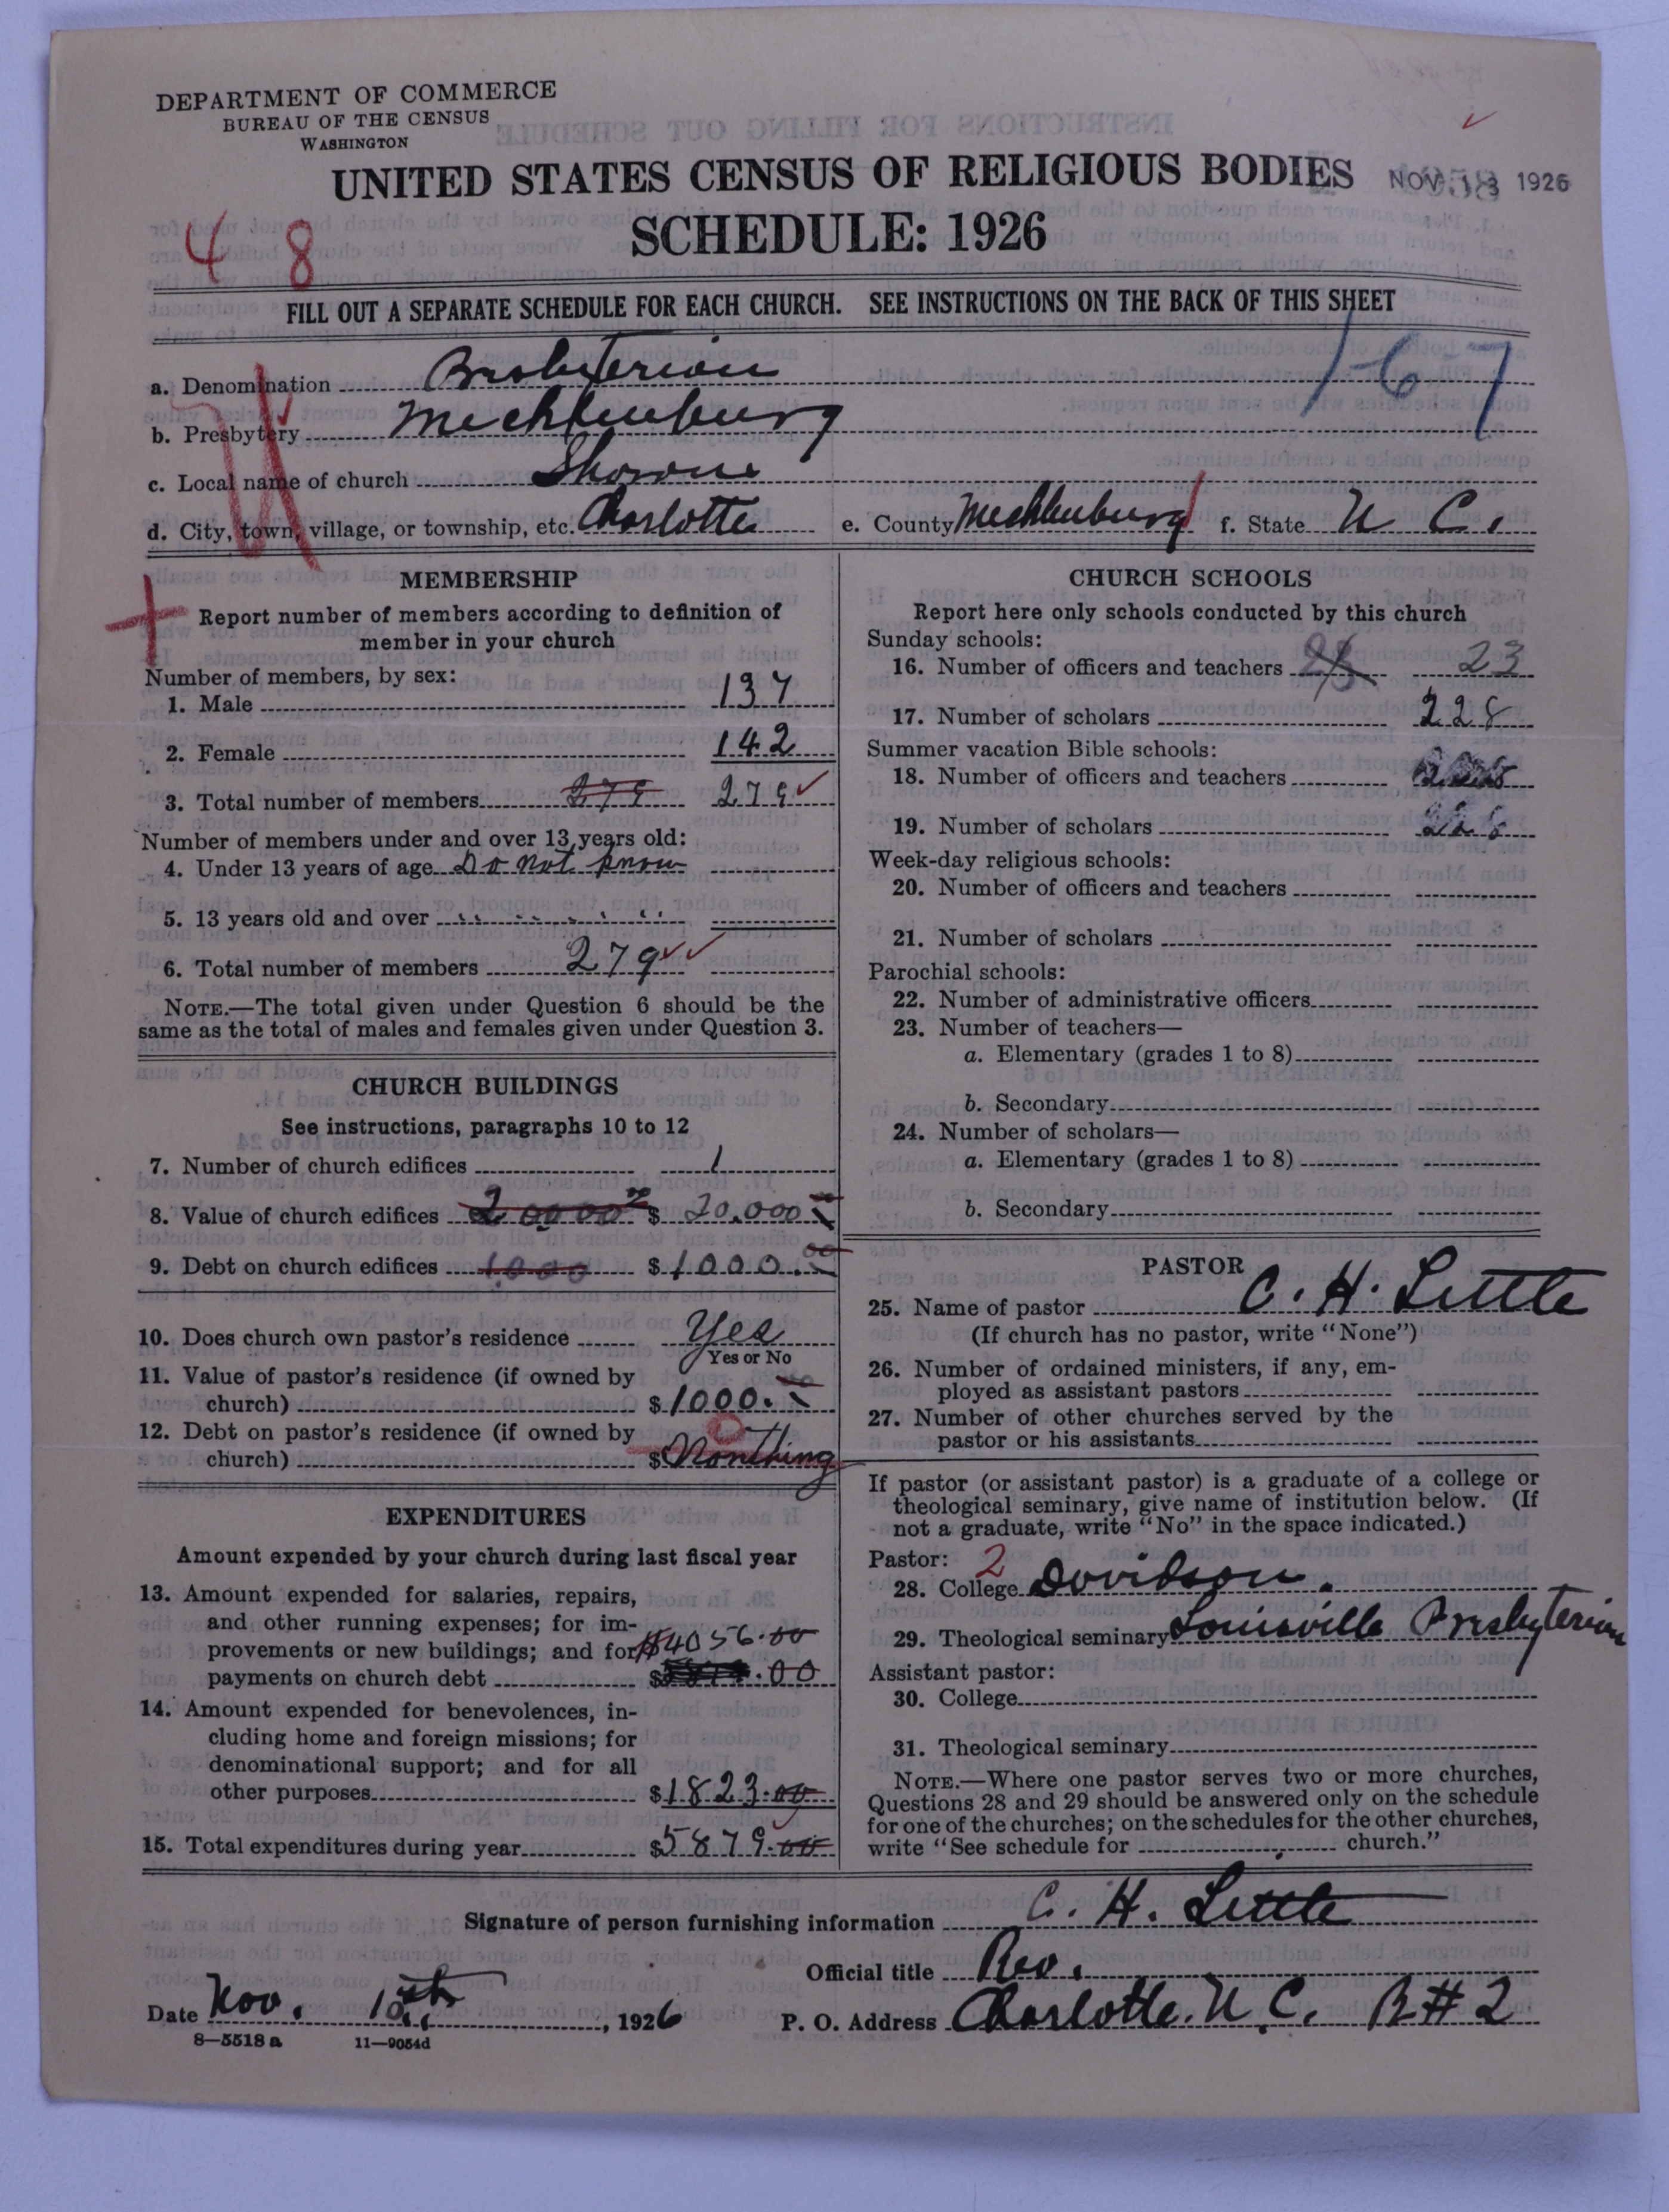 DEPARTMENT OF COMMERCE
BUREAU OF THE CENSUS
WASHINGTON
UNITED STATES CENSUS OF RELIGIOUS BODIES
NOV 13 1926
SCHEDULE: 1926
4 8
FILL OUT A SEPARATE SCHEDULE FOR EACH CHURCH. SEE INSTRUCTIONS ON THE BACK OF THIS SHEET
167
a. Denomination Presbyterian
b. Presbytery Mecklenburg
c. Local name of church
d. City, town, village, or township, etc. Charlotte e. County Mecklenburg f. State N. C.
MEMBERSHIP
Report number of members according to definition of
member in your church
Number of members, by sex:
1. Male 137
2. Female 142
3. Total number of members 279 279
Number of members under and over 13 years old:
4. Under 13 years of age Do not know
5. 13 years old and over " " " "
6. Total number of members 279
NOTE.—The total given under Question 6 should be the
same as the total of males and females given under Question 3.
CHURCH BUILDINGS
See instructions, paragraphs 10 to 12
7. Number of church edifices 1
8. Value of church edifices 20000 $ 20,000
9. Debt on church edifices 1000 $ 1000.00
10. Does church own pastor's residence Yes
Yes or No
11. Value of pastor's residence (if owned by
church) $ 1000.
12. Debt on pastor's residence (if owned by
church) $ Nonthing
0
EXPENDITURES
Amount expended by your church during last fiscal year
13. Amount expended for salaries, repairs,
and other running expenses; for im-
provements or new buildings; and for $4056.00
payments on church debt $ .00
14. Amount expended for benevolences, in-
cluding home and foreign missions; for
denominational support; and for all
other purposes $1823.00
15. Total expenditures during year $5879.00
CHURCH SCHOOLS
Report here only schools conducted by this church
Sunday schools:
16. Number of officers and teachers 23
17. Number of scholars 228
Summer vacation Bible schools:
18. Number of officers and teachers
19. Number of scholars
Week-day religious schools:
20. Number of officers and teachers
21. Number of scholars
Parochial schools:
22. Number of administrative officers
23. Number of teachers—
a. Elementary (grades 1 to 8)
b. Secondary
24. Number of scholars—
a. Elementary (grades 1 to 8)
b. Secondary
PASTOR
25. Name of pastor C. H. Little
(If church has no pastor, write "None")
26. Number of ordained ministers, if any, em-
ployed as assistant pastors
27. Number of other churches served by the
pastor or his assistants
If pastor (or assistant pastor) is a graduate of a college or
theological seminary, give name of institution below. (If
not a graduate, write "No" in the space indicated.)
Pastor: 2
28. College Davidson.
29. Theological seminary Louisville Presbyterian
Assistant pastor:
30. College
31. Theological seminary
NOTE.—Where one pastor serves two or more churches,
Questions 28 and 29 should be answered only on the schedule
for one of the churches; on the schedules for the other churches,
write "See schedule for church."
Signature of person furnishing information C. H. Little
Official title Rev.
Date Nov. 10th, 1926 P. O. Address Charlotte. N. C. R#2
8—5518 a 11—9054d